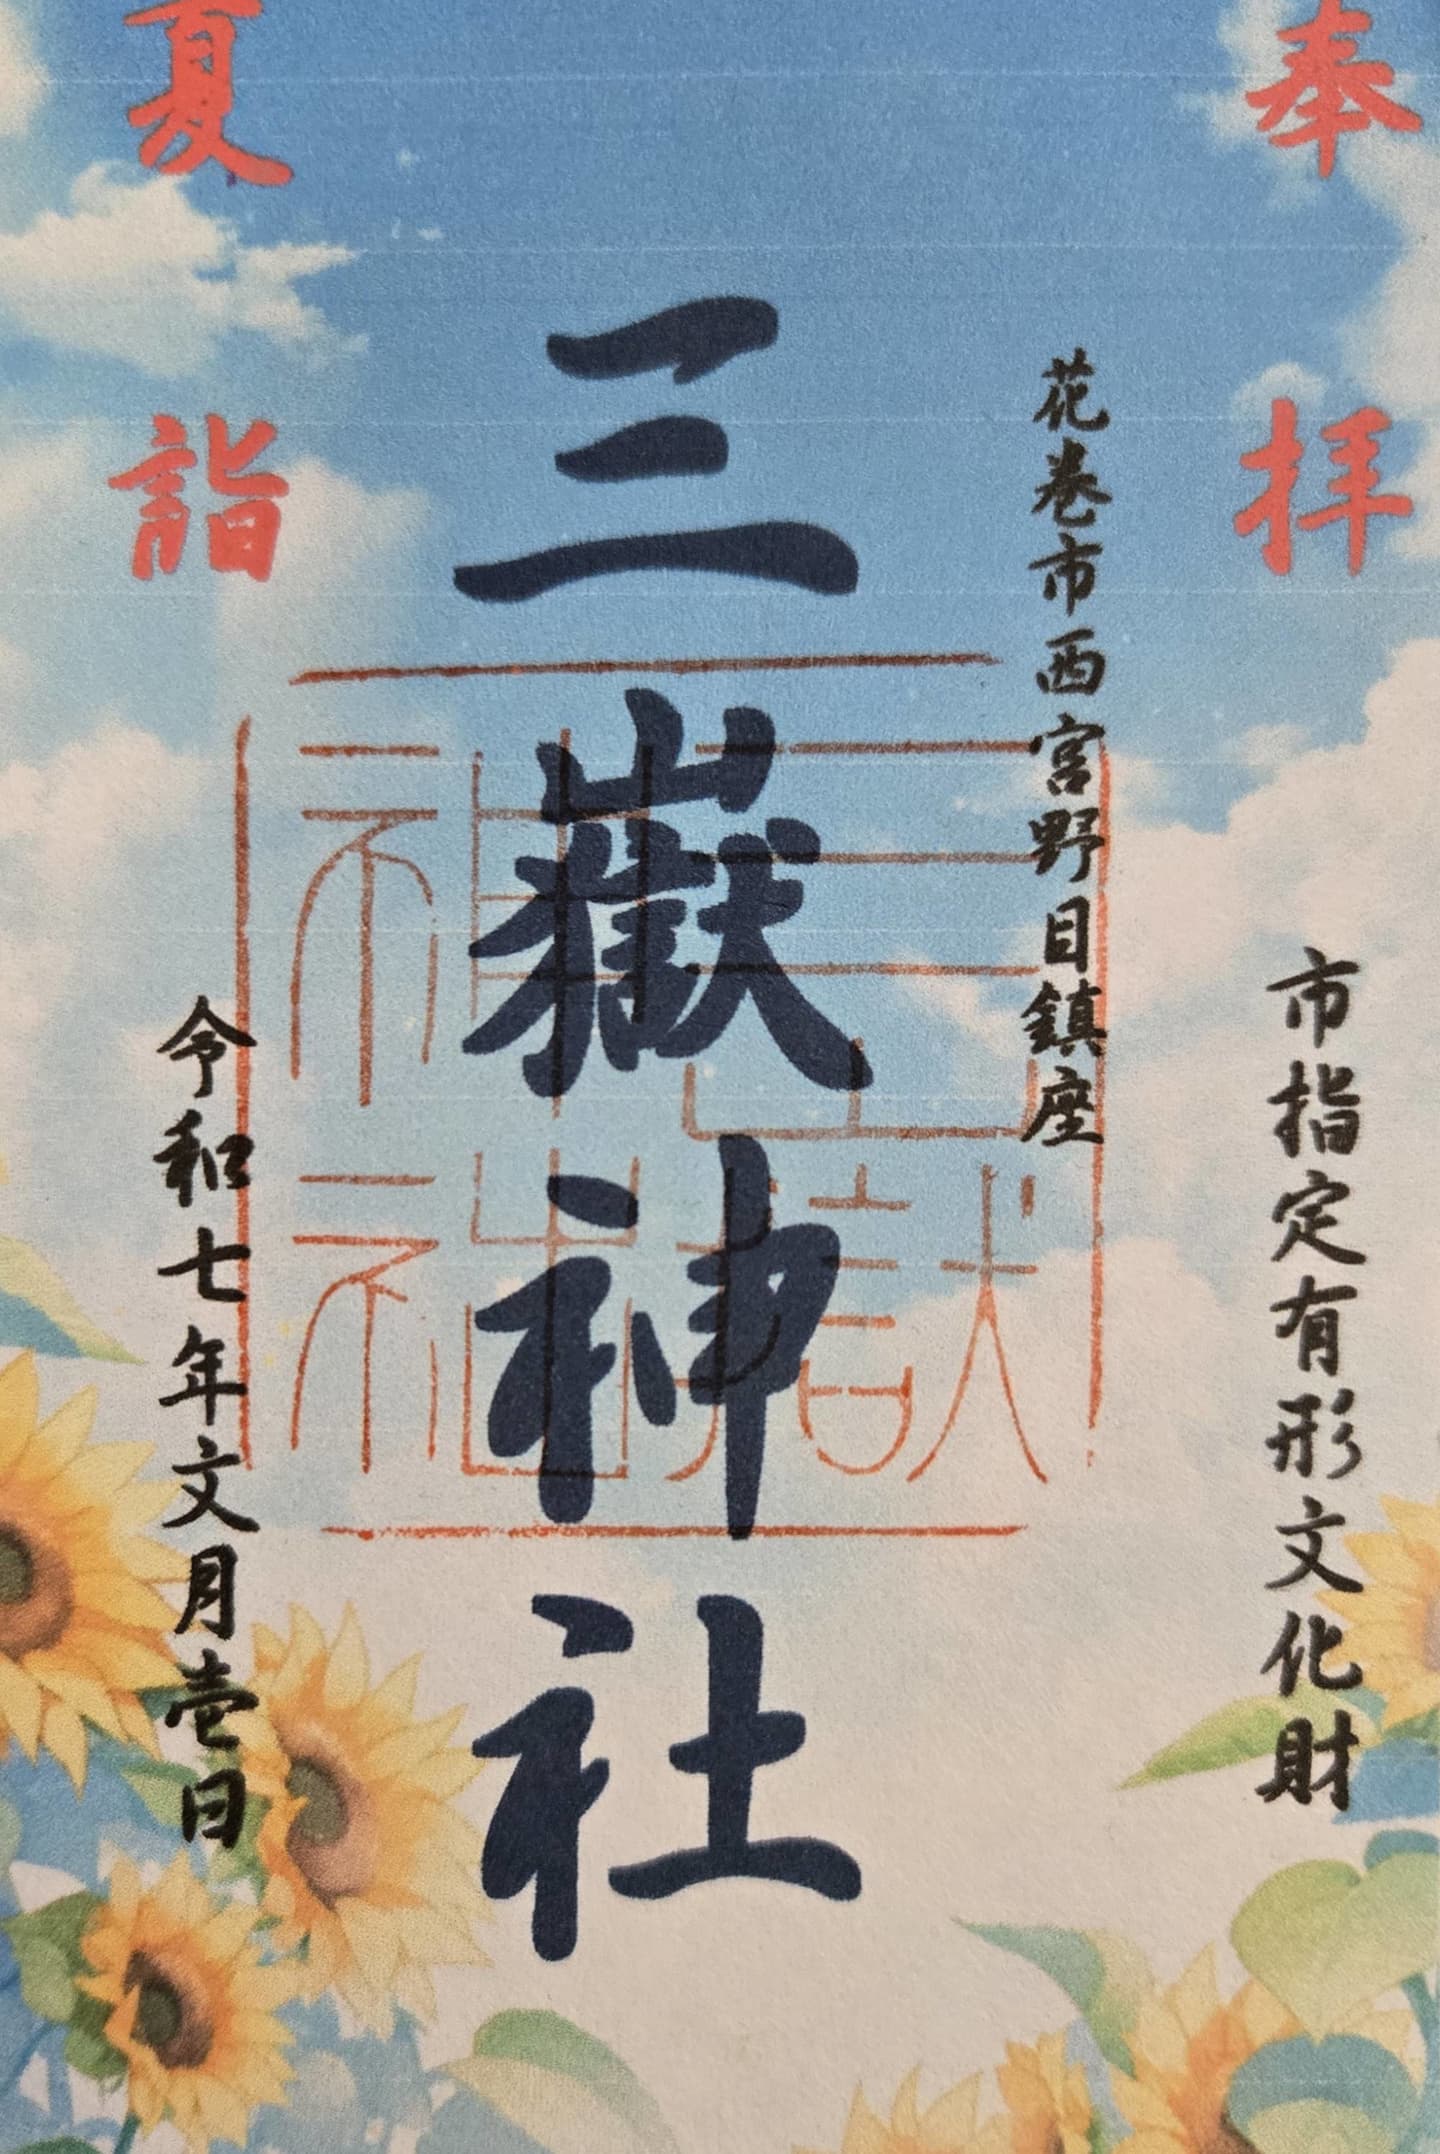 奉拝
市指定有形文化財
花巻市西宮野目鎮座
三嶽神社
三嶽神社
夏詣
令和七年文月壱日